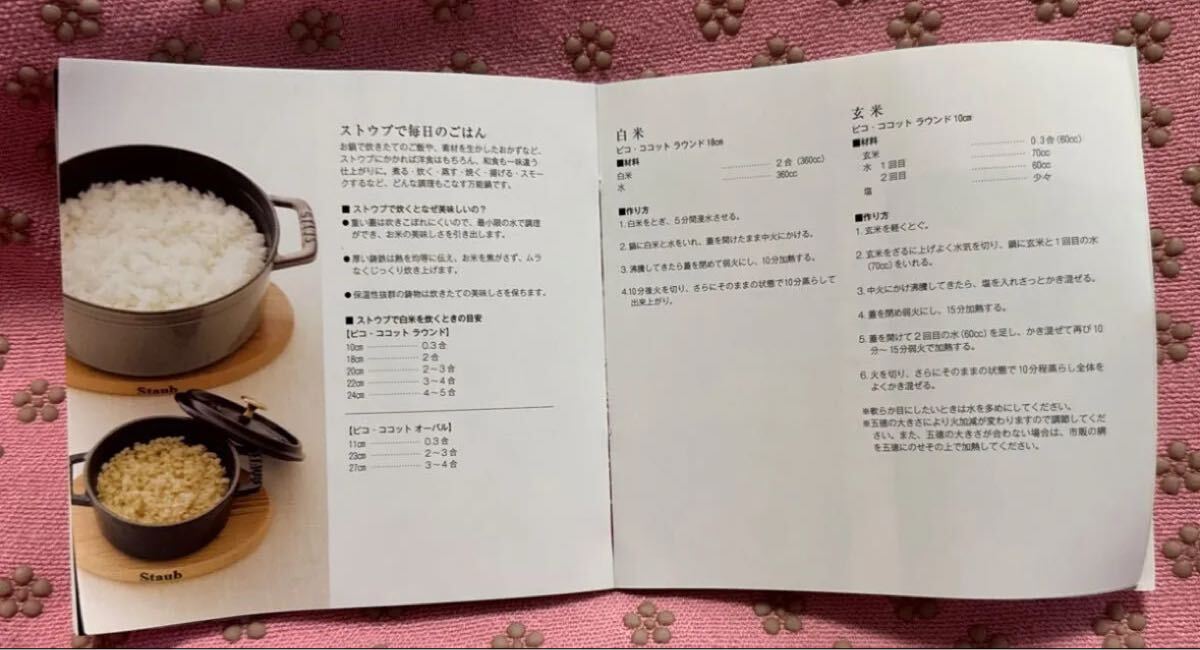 ストウブで毎日のごはん
お鍋で炊きたてのご飯や、素材を生かしたおかずなど、
ストウブにかかれば洋食はもちろん、和食も一味違う
仕上がりに。煮る・炊く・蒸す・焼く・揚げる・スモー
クするなど、どんな調理もこなす万能鍋です。
■ ストウブで炊くとなぜ美味しいの?
●重い蓋は炊きこぼれにくいので、最小限の水で調理
ができ、お米の美味しさを引き出します。
●厚い鋳鉄は熱を均等に伝え、お米を焦がさず、ムラ
なくじっくり炊き上げます。
●保温性抜群の鋳物は炊きたての美味しさを保ちます。
■ ストウブで白米を炊くときの目安
【ピコ・ココット ラウンド】
10㎝ ……………… 0.3合
18㎝ ……………… 2合
20㎝ ……………… 2〜3合
22㎝ ……………… 3〜4合
24㎝ ……………… 4〜5合
【ピコ・ココット オーバル】
11㎝ ……………… 0.3合
23㎝ ……………… 2〜3合
27㎝ ……………… 3〜4合
STAUB
Staub
STAUB
Staub
白米
ピコ・ココット ラウンド18㎝
■材料
白米 ……………… 2合(360cc)
水 ……………… 360cc
■作り方
1.白米をとぎ、5分間浸水させる。
2.鍋に白米と水をいれ、蓋を開けたまま中火にかける。
3.沸騰してきたら蓋を閉めて弱火にし、10分加熱する。
4.10分後火を切り、さらにそのままの状態で10分蒸らして
出来上がり。
玄米
ピコ・ココット ラウンド10㎝
■材料
玄米 ……………… 0.3合(60cc)
水 1回目 ……………… 70cc
2回目 ……………… 60cc
塩 ……………… 少々
■作り方
1.玄米を軽くとぐ。
2.玄米をざるに上げよく水気を切り、鍋に玄米と1回目の水
(70cc)をいれる。
3.中火にかけ沸騰してきたら、塩を入れさっとかき混ぜる。
4.蓋を閉め弱火にし、15分加熱する。
5.蓋を開けて2回目の水(60cc)を足し、かき混ぜて再び10
分〜15分弱火で加熱する。
6.火を切り、さらにそのままの状態で10分程蒸らし全体を
よくかき混ぜる。
※軟らか目にしたいときは水を多めにしてください。
※五徳の大きさにより火加減が変わりますので調節してくだ
さい。また、五徳の大きさが合わない場合は、市販の網
を五徳にのせその上で加熱してください。